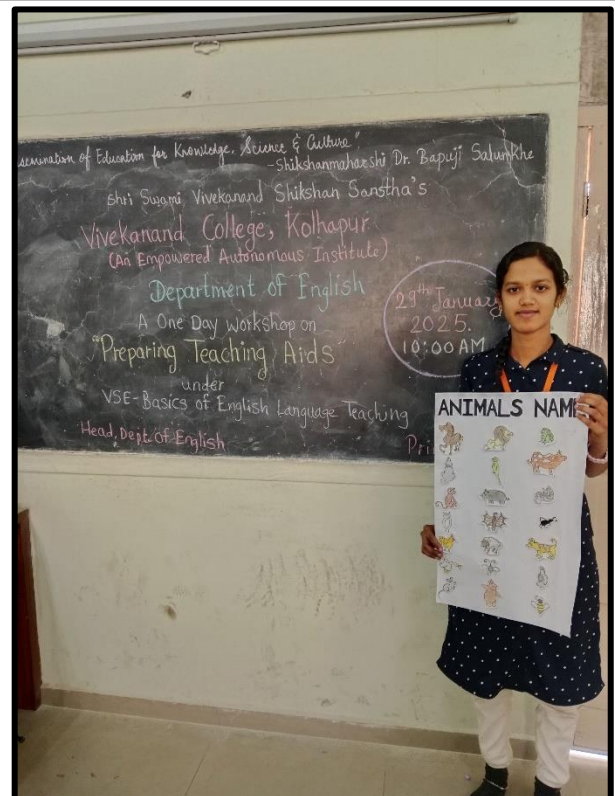 semination of Education for Knowledge, Science & Culture"
-Shikshanmaharshi Dr. Bapuji Salunkhe
Shri Swami Vivekanand Shikshan Sanstha's
Vivekanand College, Kolhapur
(An Empowered Autonomous Institute)
Department of English
29th January
2025.
10:00 AM
A One Day Workshop on
"Preparing Teaching Aids"
under
VSE-Basics of English Language Teaching
Head, Dept. of English
Pri
ANIMALS NAME